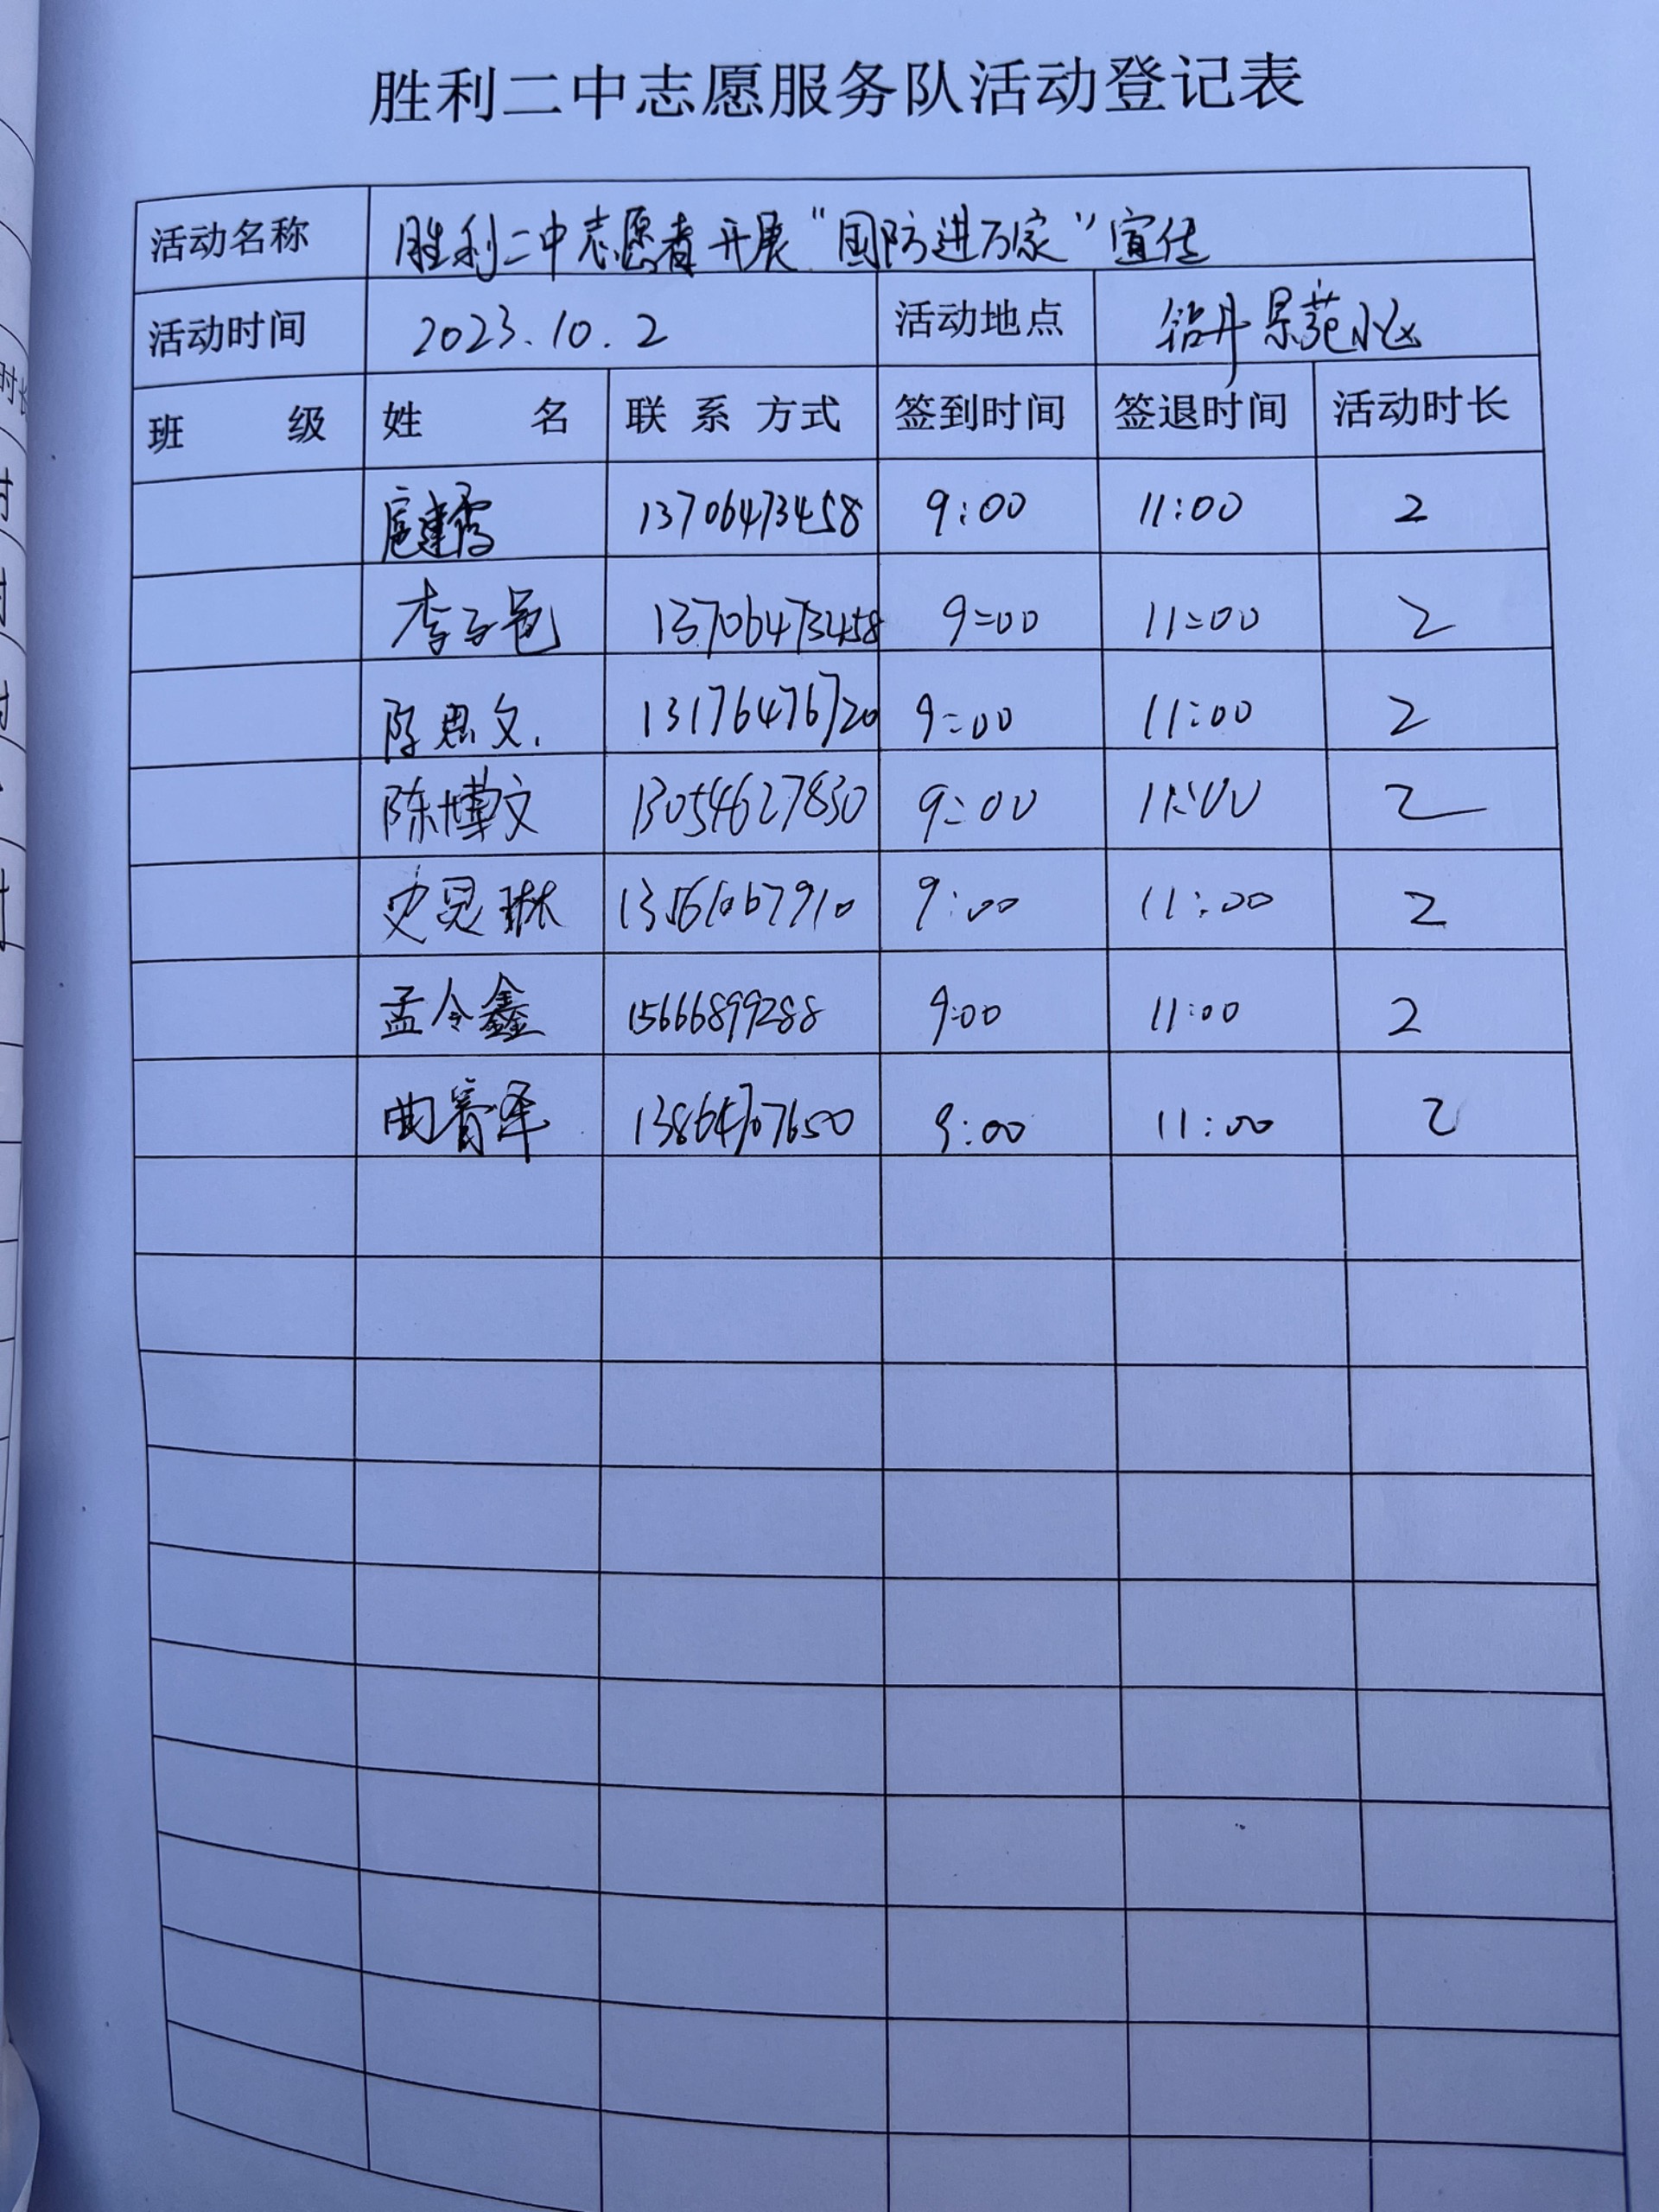 胜利二中志愿服务队活动登记表
活动名称 胜利二中志愿者开展“国防进万家”宣传
活动时间 2023.10.2 活动地点 钻井景苑小区
班 级 姓 名 联系方式 签到时间 签退时间 活动时长
扈建霞 13706473458 9:00 11:00 2
李子 13706473458 9:00 11:00 2
陈思文 13176476720 9:00 11:00 2
陈博文 13054627830 9:00 11:00 2
史思琳 13561067910 9:00 11:00 2
孟令鑫 15666899288 9:00 11:00 2
曲睿泽 13864707650 9:00 11:00 2